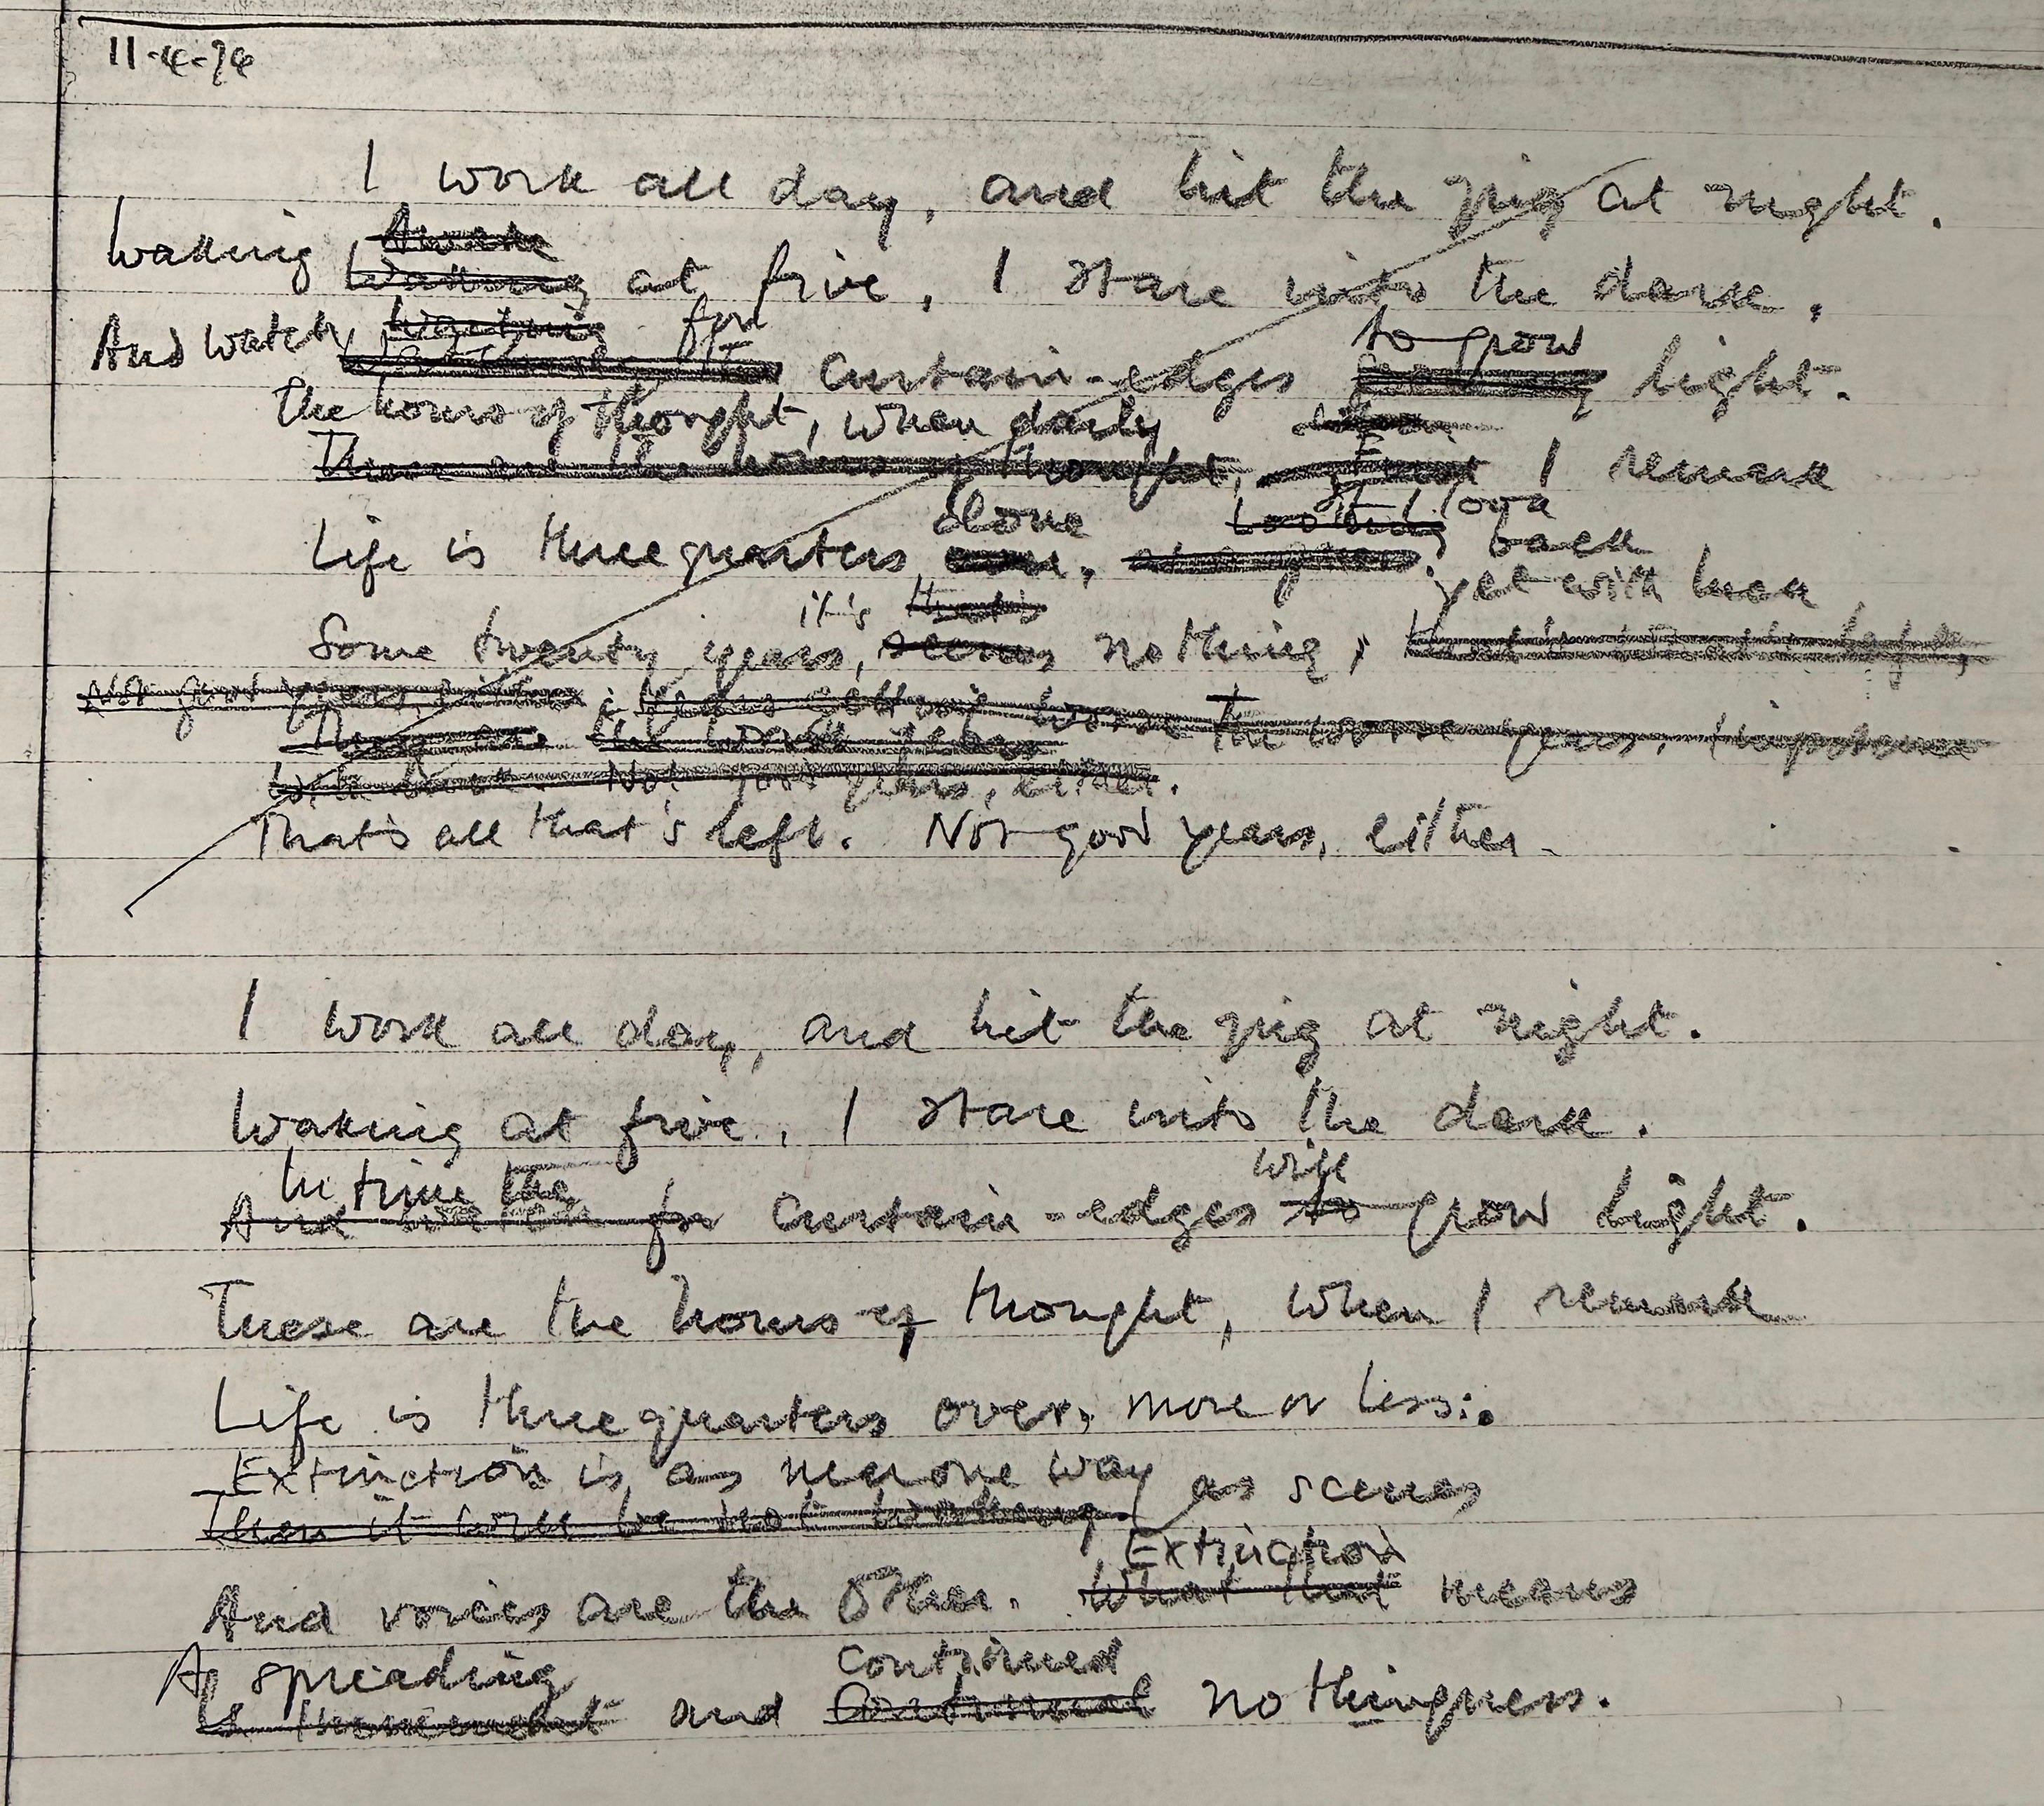 11-4-74
I work all day, and hit the gig at night.
Waking Awake
Waking at five, I stare into the dark,
And watch, for to grow
curtain-edges light.
The hours of thought, when daily
These are the hours of thought, I remark
done Looking If I look
Life is threequarters over, back
it's that's yet with luck
Some twenty years, seems nothing,
Not good years, either; the worse years,
They are the worst years
with luck. Not good years, either.
That's all that's left. Not good years, either.
I work all day, and hit the gig at night.
Waking at five, I stare into the dark.
In time the will
And watch for curtain-edges to grow light.
These are the hours of thought, when I remark
Life is threequarters over, more or less:
Extinction is as near one way as scenes
Then it will be
Extinction
And voices are the other. What that means
A spreading continued
Is imminent and continual nothingness.